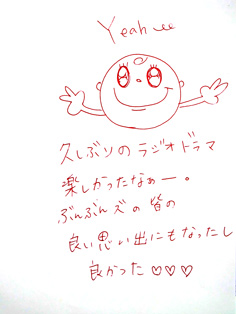 Yeah
久しぶりのラジオドラマ
楽しかったなぁー。
ぶんぶんズの皆の
良い思い出にもなったし
良かった♡♡♡